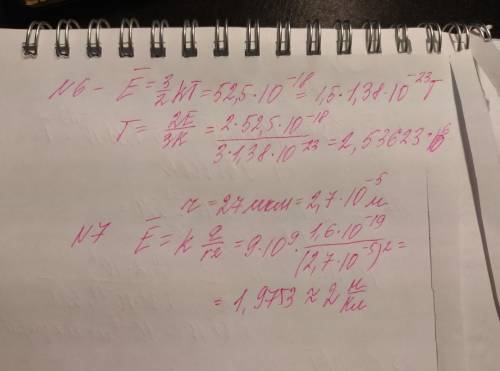 N6 - E̅ = 3/2 kT = 52,5·10⁻¹⁸ = 1,5·1,38·10⁻²³ T
T = 2E/3k = 2·52,5·10⁻¹⁸ / 3·1,38·10⁻²³ = 2,53623·10⁶
r = 27 мкм = 2,7·10⁻⁵ м
N7 E̅ = k q/r² = 9·10⁹ · 1,6·10⁻¹⁹ / (2,7·10⁻⁵)² =
= 1,9753 ≈ 2 Н/Кл